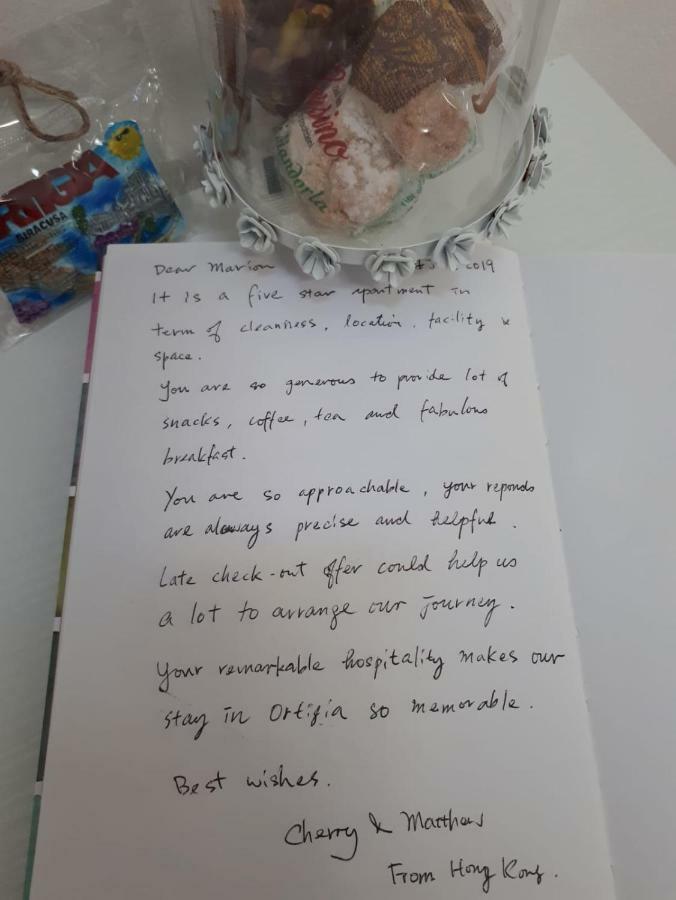 SIRACUSA
Mandorla
Dear Marion 2019
It is a five star apartment in
term of cleanness, location, facility &
space.
You are so generous to provide lot of
snacks, coffee, tea and fabulous
breakfast.
You are so approachable, your reponds
are always precise and helpful.
Late check-out offer could help us
a lot to arrange our journey.
Your remarkable hospitality makes our
stay in Ortifia so memorable.
Best wishes.
Cherry & Matthew
From Hong Kong.